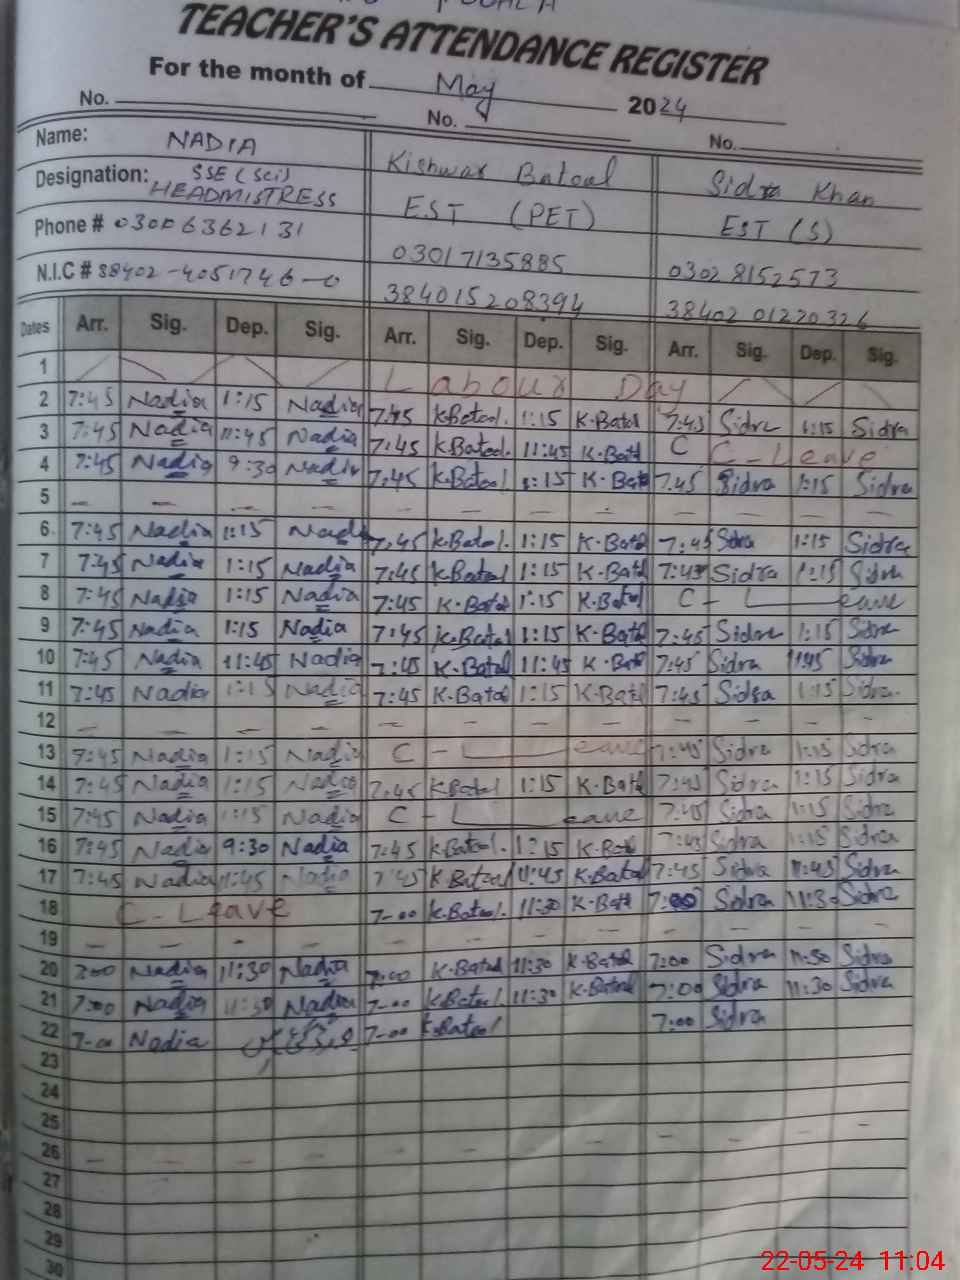 TEACHER'S ATTENDANCE REGISTER
For the month of May 2024
No. No. No.
Name: NADIA Kishwar Batool Sidra Khan
Designation: SSE (Sci) HEADMISTRESS EST (PET) EST (S)
Phone # 03006362131 03017135885 03028152573
N.I.C # 38402-4051746-0 384015208394 38402 01220326
Dates Arr. Sig. Dep. Sig. Arr. Sig. Dep. Sig. Arr. Sig. Dep. Sig.
1 Labour Day
2 7:45 Nadia 1:15 Nadia 7:45 K.Batool. 1:15 K-Batol 7:45 Sidra 1:15 Sidra
3 7:45 Nadia 11:45 Nadia 7:45 K.Batool. 11:45 K-Batl C C-Leave
4 7:45 Nadia 9:30 Nadia 7:45 K.Batool 1:15 K-Batl 7:45 Sidra 1:15 Sidra
5 – – – – – – – – – – –
6 7:45 Nadia 1:15 Nadia 7:45 K.Batol. 1:15 K-Batl 7:45 Sidra 1:15 Sidra
7 7:45 Nadia 1:15 Nadia 7:45 K.Batol 1:15 K-Batl 7:45 Sidra 1:15 Sidra
8 7:45 Nadia 1:15 Nadia 7:45 K-Batol 1:15 K-Batol C - Leave
9 7:45 Nadia 1:15 Nadia 7:45 K.Batol 1:15 K-Batl 7:45 Sidra 1:15 Sidra
10 7:45 Nadia 11:45 Nadia 7:45 K-Batol 11:45 K-Batl 7:45 Sidra 11:45 Sidra
11 7:45 Nadia 1:15 Nadia 7:45 K-Batol 1:15 K-Batl 7:45 Sidra 1:15 Sidra
12 – – – – – – – – – – – –
13 7:45 Nadia 1:15 Nadia C - Leave 7:45 Sidra 1:15 Sidra
14 7:45 Nadia 1:15 Nadia 7:45 K.Batol 1:15 K-Batl 7:45 Sidra 1:15 Sidra
15 7:45 Nadia 1:15 Nadia C - Leave 7:45 Sidra 1:15 Sidra
16 7:45 Nadia 9:30 Nadia 7:45 K.Batol. 1:15 K-Batl 7:45 Sidra 1:15 Sidra
17 7:45 Nadia 11:45 Nadia 7:45 K.Batool 11:45 K-Batol 7:45 Sidra 11:45 Sidra
18 C-Leave 7-00 K.Batol. 11:30 K-Batl 7:00 Sidra 11:30 Sidra
19 – – – – – – – – – – – –
20 7:00 Nadia 11:30 Nadia 7:00 K-Batol 11:30 K-Batol 7:00 Sidra 11:30 Sidra
21 7:00 Nadia 11:30 Nadia 7-00 K.Batol. 11:30 K-Batol 7:00 Sidra 11:30 Sidra
22 7-00 Nadia 7-00 K.Batool 7:00 Sidra
23
24
25
26 – – – – – – – – – –
27
28
29
30
22-05-24 11:04